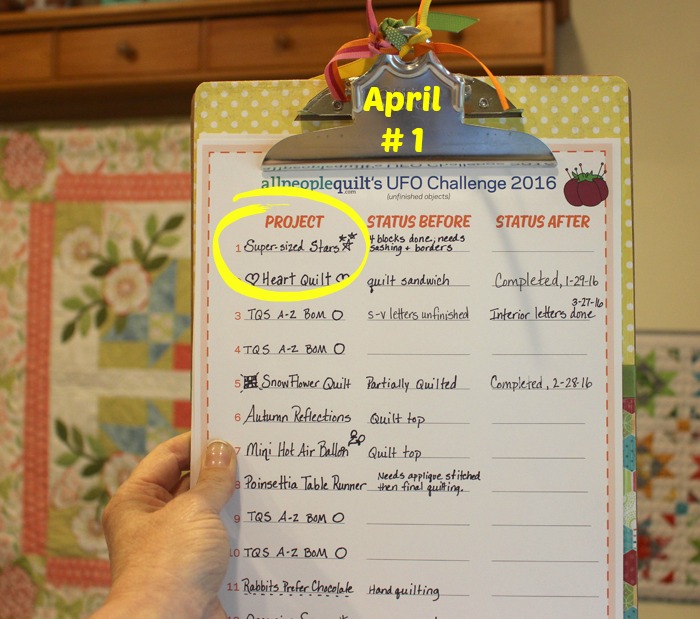 April
# 1
allpeoplequilt's UFO Challenge 2016
.com
(unfinished objects)
PROJECT STATUS BEFORE STATUS AFTER
1 Super-sized Stars 4 blocks done, needs
sashing + borders
Heart Quilt quilt sandwich Completed, 1-29-16
3 TQS A-Z BOM S-V letters unfinished Interior letters done
3-27-16
4 TQS A-Z BOM
5 Snow Flower Quilt Partially Quilted Completed, 2-28-16
6 Autumn Reflections Quilt top
7 Mini Hot Air Ballon Quilt top
8 Poinsettia Table Runner Needs applique stitched
then final quilting.
9 TQS A-Z BOM
10 TQS A-Z BOM
11 Rabbits Prefer Chocolate Hand quilting